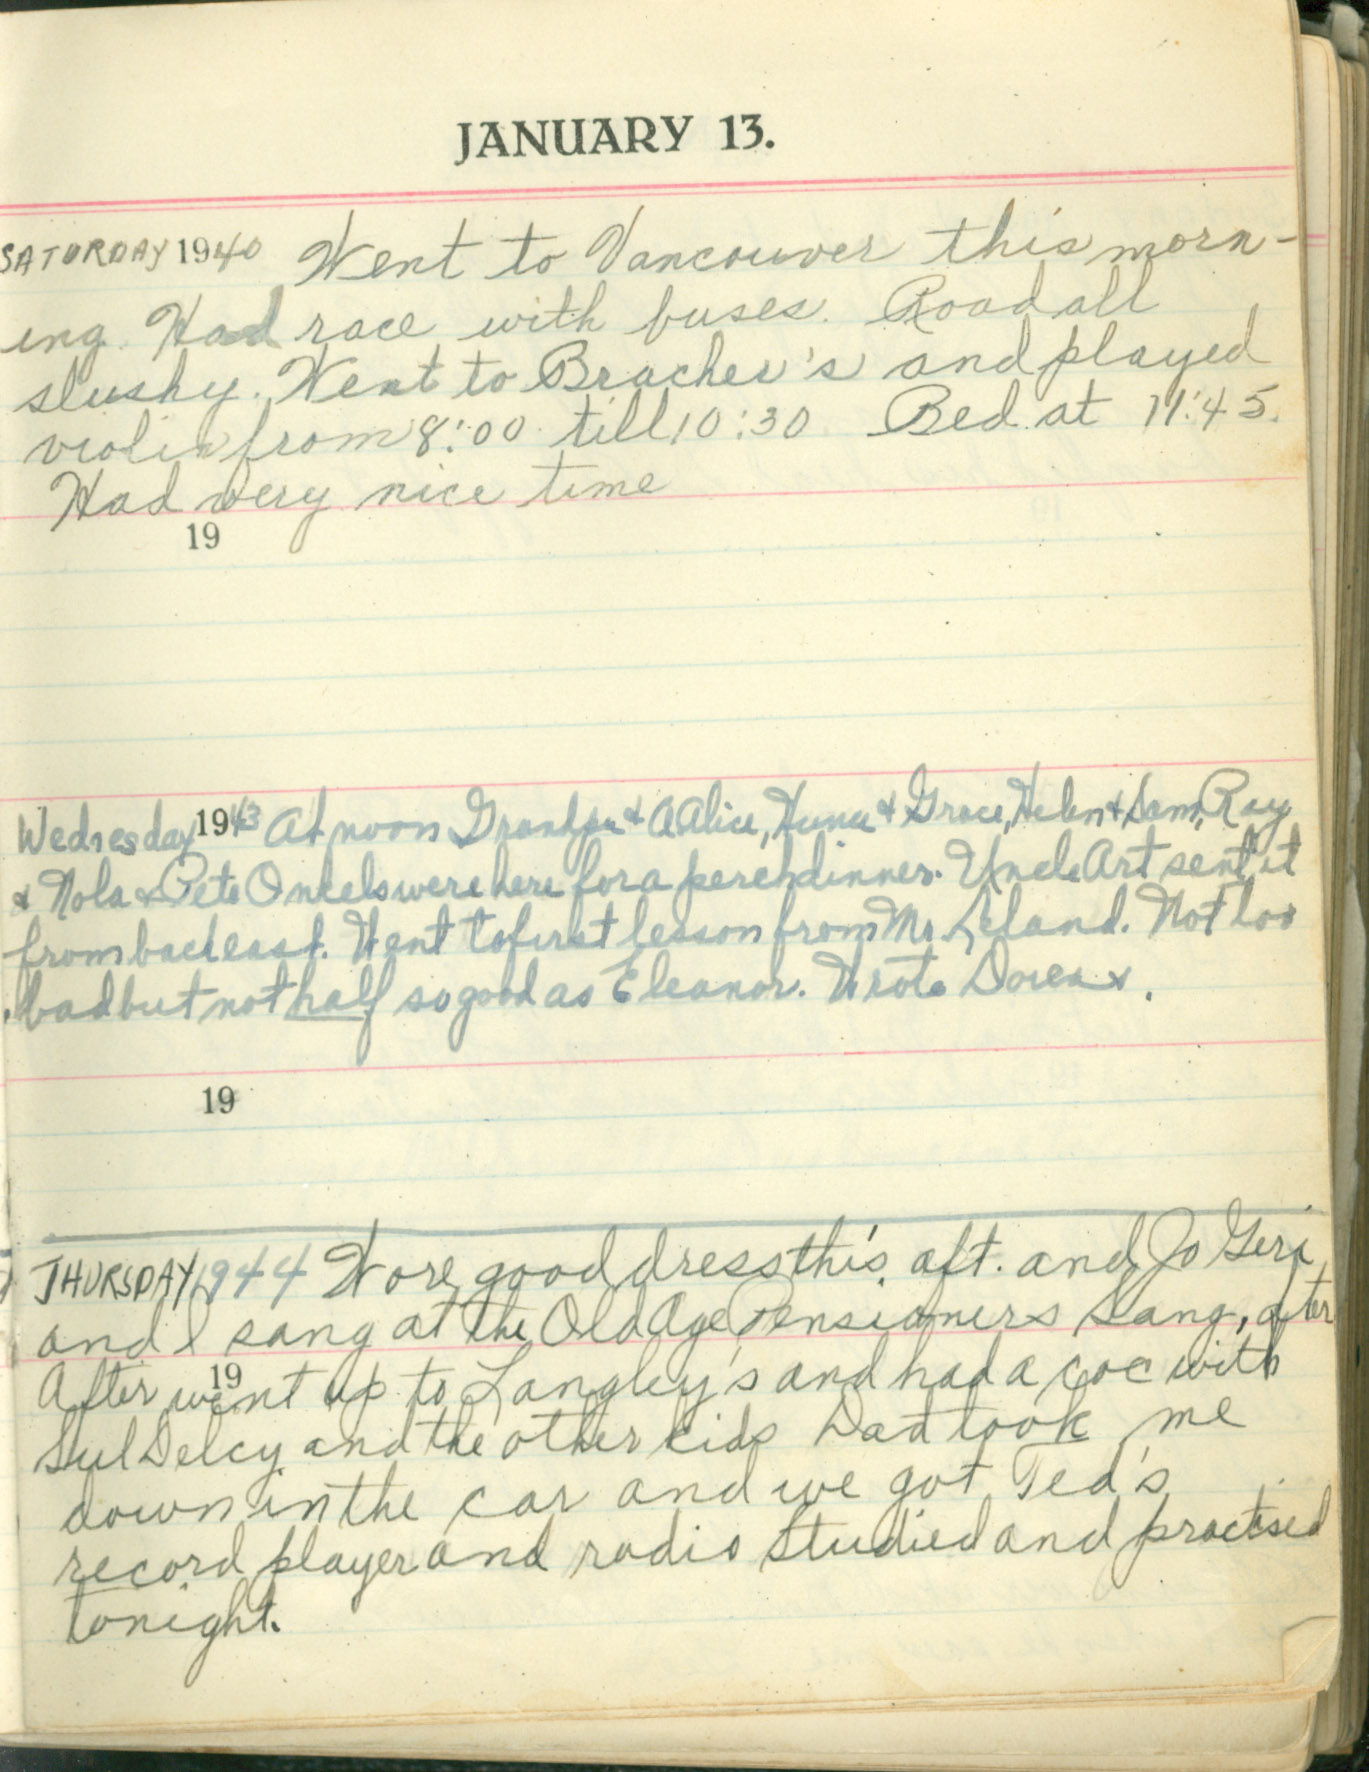 JANUARY 13.
SATURDAY 1940 Went to Vancouver this morn-
ing. Had race with buses. Road all
slushy. Went to Bracher's and played
violin from 8:00 till 10:30 Bed at 11:45.
Had very nice time
19
Wednesday 1943 At noon Grandpa & A Alice, & Grace, Helen & Sam, Ray
& Nola & Pete Onkels were here for a perch dinner. Uncle Art sent it
from back east. Went to first lesson from Mr. Leland. Not too
bad but not half so good as Eleanor. Wrote
19
THURSDAY 1944 Wore good dress this aft. and Jo Geri
and I sang at the Old Age Pensioners Sang, after
After went up to Langley's and had a coc with
and the other kids Dad took me
down in the car and we got Ted's
record player and radio Studied and practised
tonight.
19